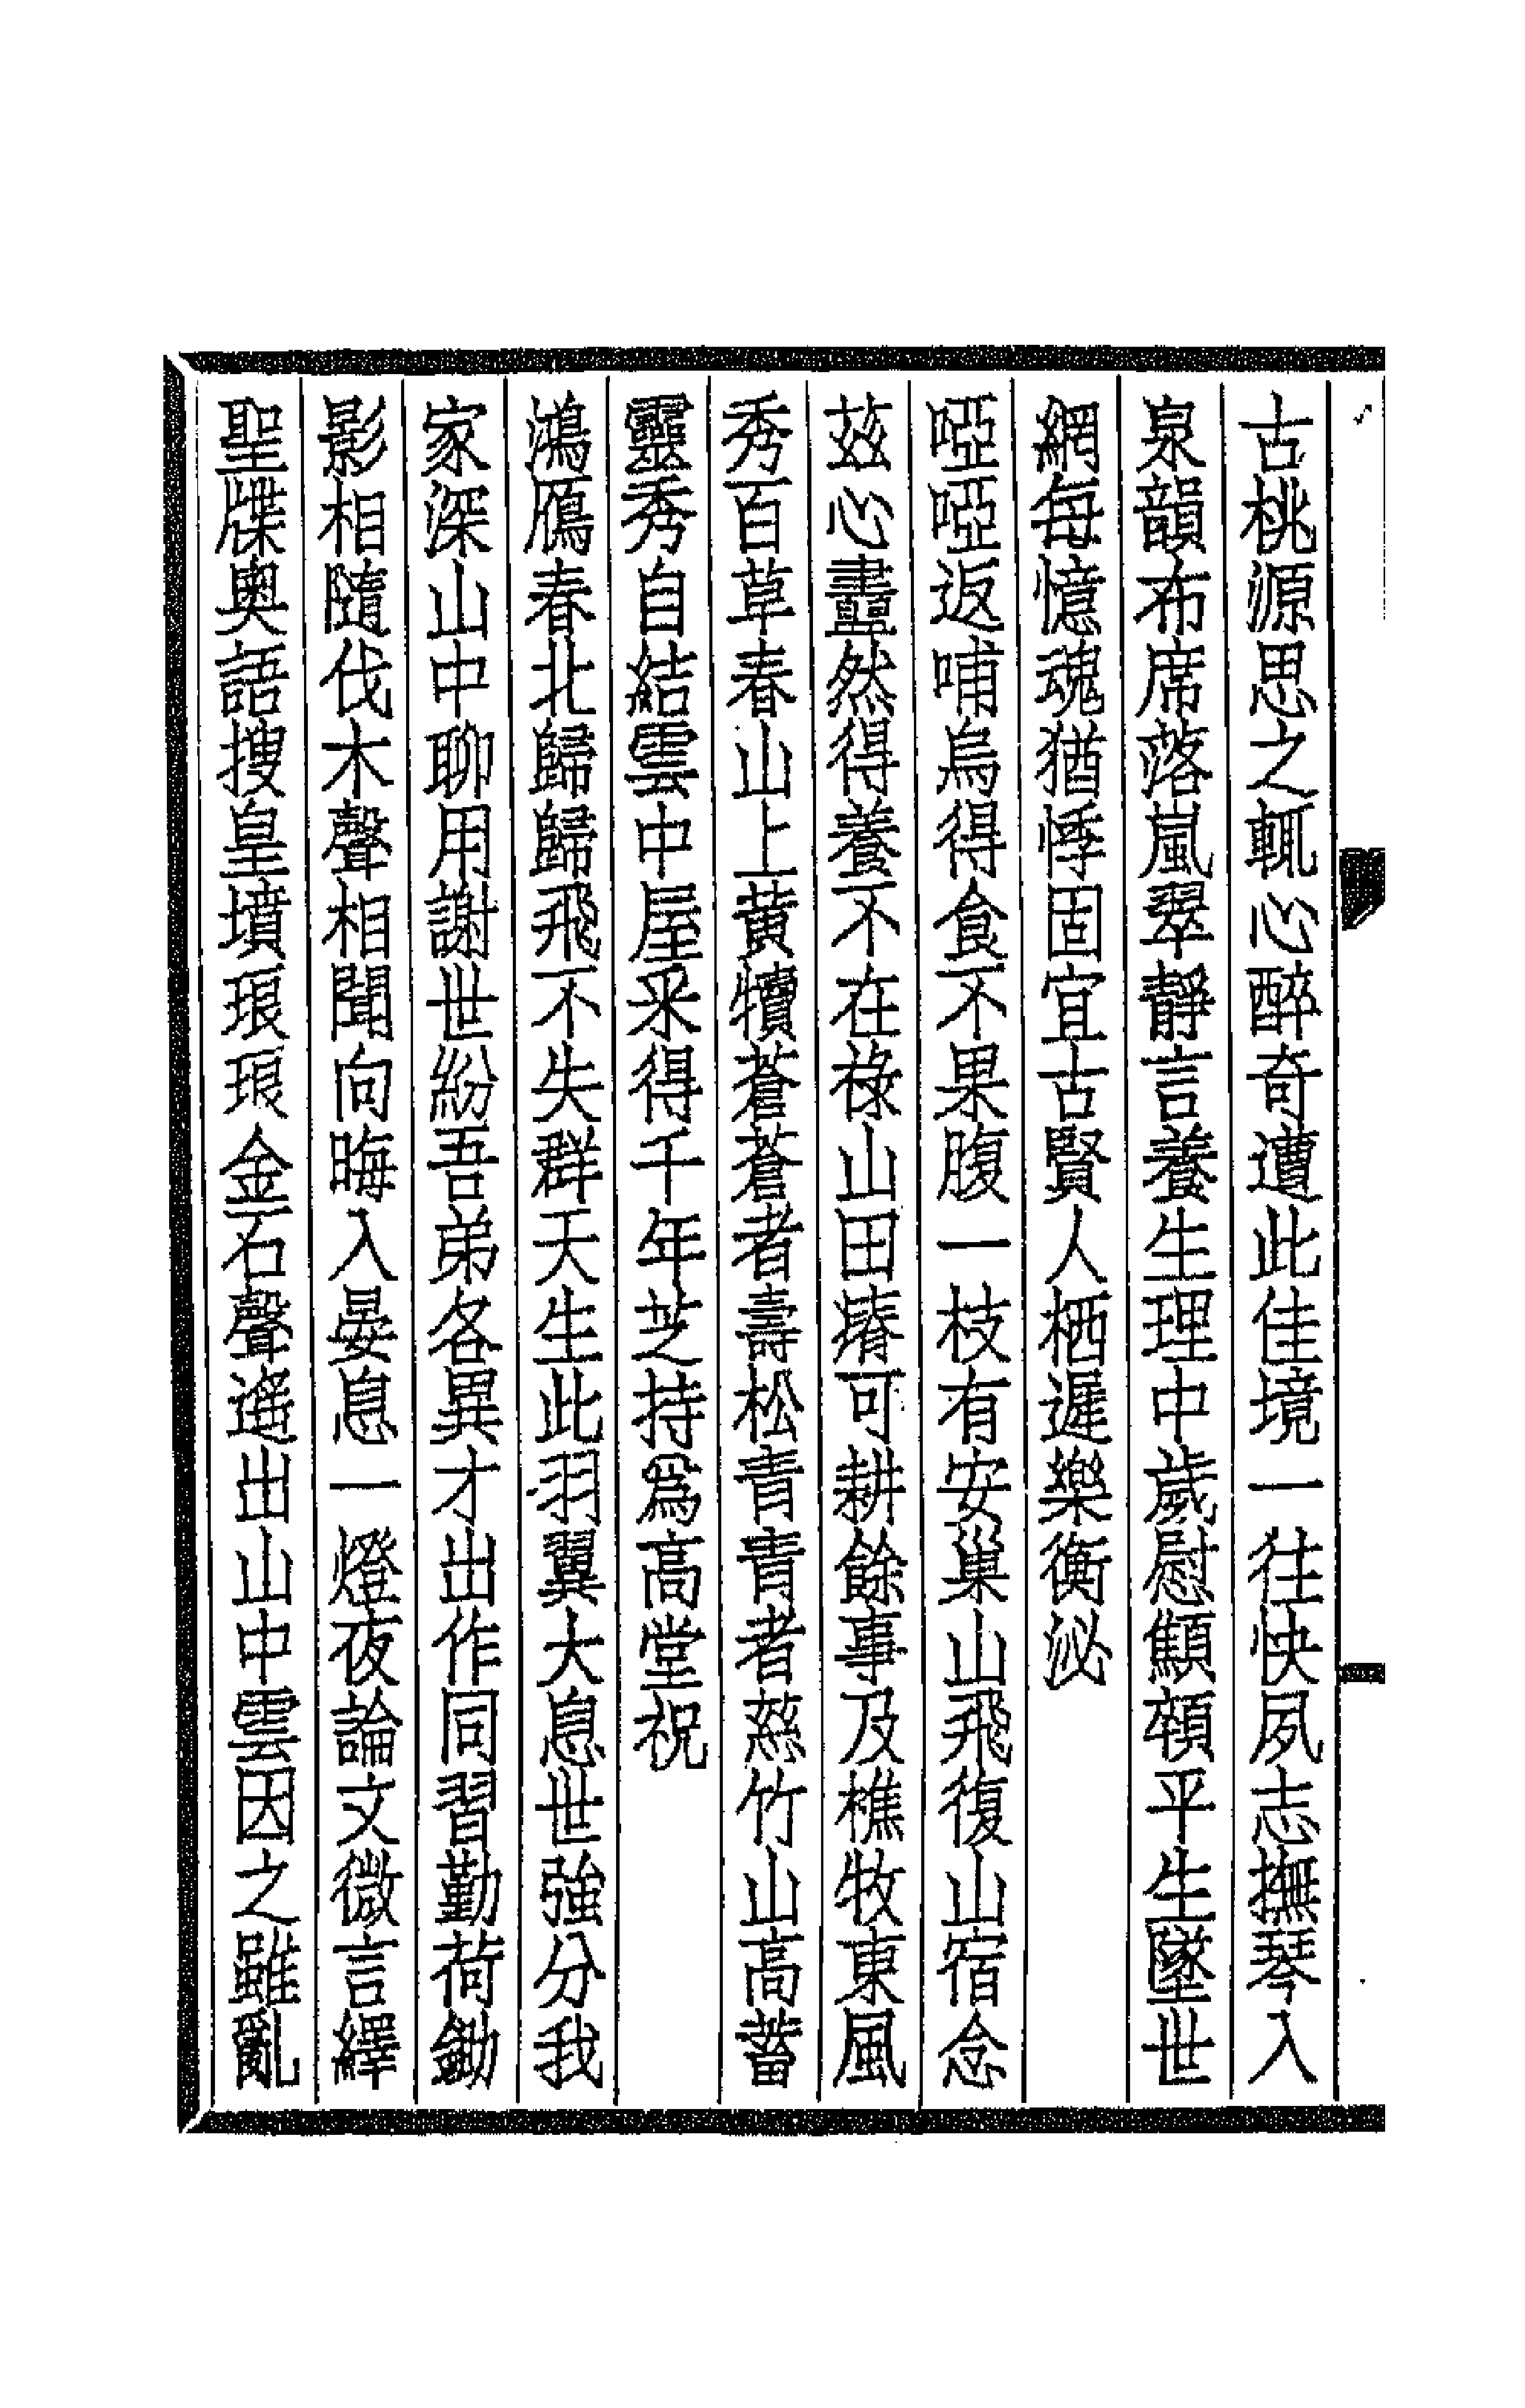 古桃源思之輒心醉奇遭此佳境一往快夙志撫琴入
泉韻布席落嵐翠靜言養生理中歲慰顦頓平生墜世
網每憶魂猶悸固宜古賢人栖遲樂衡泌
啞啞返哺烏得食不果腹一枝有安巢山飛復山宿念
茲心衋然得養不在祿山田瘠可耕餘事及樵牧東風
秀百草春山上黃犢蒼蒼者壽松青青者慈竹山高蓄
靈秀自結雲中屋采得千年芝持爲高堂祝
鴻鴈春北歸歸飛不失群天生此羽翼大息世強分我
家深山中聊用謝世紛吾弟各異才出作同習勤荷鋤
影相隨伐木聲相聞向晦入晏息一燈夜論文微言繹
聖牒奧語搜皇墳琅琅金石聲遙出山中雲因之雖亂